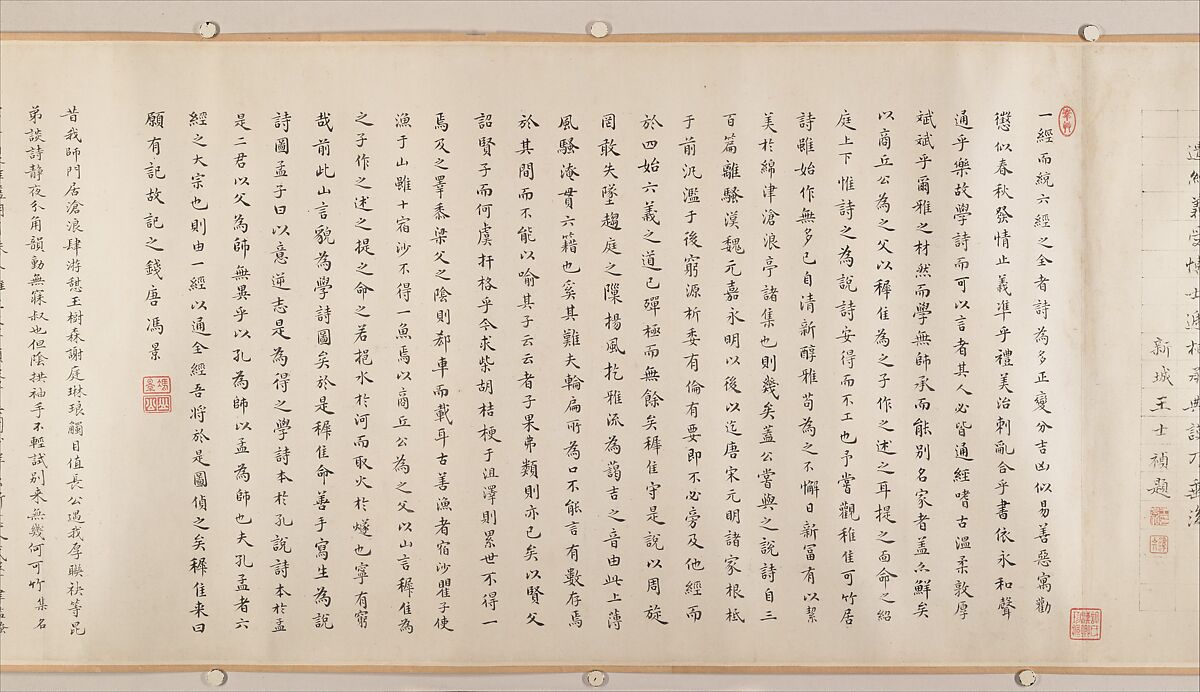 新城王士禎題
一經而統六經之全者詩為多正變分吉凶似易善惡寓勸
懲似春秋發情止義準乎禮美治刺亂合乎書依永和聲
通乎樂故學詩而可以言者其人必皆通經嗜古溫柔敦厚
斌斌乎爾雅之材然而學無師承而能別名家者蓋亦鮮矣
以商丘公為之父以稺佳為之子作之述之耳提之面命之紹
庭上下惟詩之為說詩安得而不工也予嘗觀稚佳可竹居
詩雖始作無多已自清新醇雅苟為之不懈日新富有以絜
美於綿津滄浪亭諸集也則幾矣蓋公嘗與之說詩自三
百篇離騷漢魏元嘉永明以後以迄唐宋元明諸家根柢
于前汎濫于後窮源析委有倫有要即不必旁及他經而
於四始六義之道已殫極而無餘矣稺佳守是說以周旋
罔敢失墜趨庭之隟揚風扢雅流為謁吉之音由此上薄
風騷淹貫六籍也奚其難夫輪扁所為口不能言有數存焉
於其間而不能以喻其子云云者子果弗類則亦已矣以賢父
詔賢子而何虞扞格乎今求柴胡桔梗于沮澤則累世不得一
焉及之睪黍梁父之陰則郄車而載耳古善漁者宿沙瞿子使
漁于山雖十宿沙不得一魚焉以商丘公為之父以山言稺佳為
之子作之述之提之命之若挹水於河而取火於燧也寧有窮
哉前此山言貌為學詩圖矣於是稺佳命善手寫生為說
詩圖孟子曰以意逆志是為得之學詩本於孔說詩本於孟
是二君以父為師無異乎以孔為師以孟為師也夫孔孟者六
經之大宗也則由一經以通全經吾將於是圖偵之矣稺佳來曰
願有記故記之錢唐馮景
昔我師門居滄浪肆游憇玉樹森謝庭琳琅觸目值長公遇我厚聯袂等昆
弟談詩靜夜分角韻動無寐叔也但陰拱袖手不輕試別來無幾何可竹集名